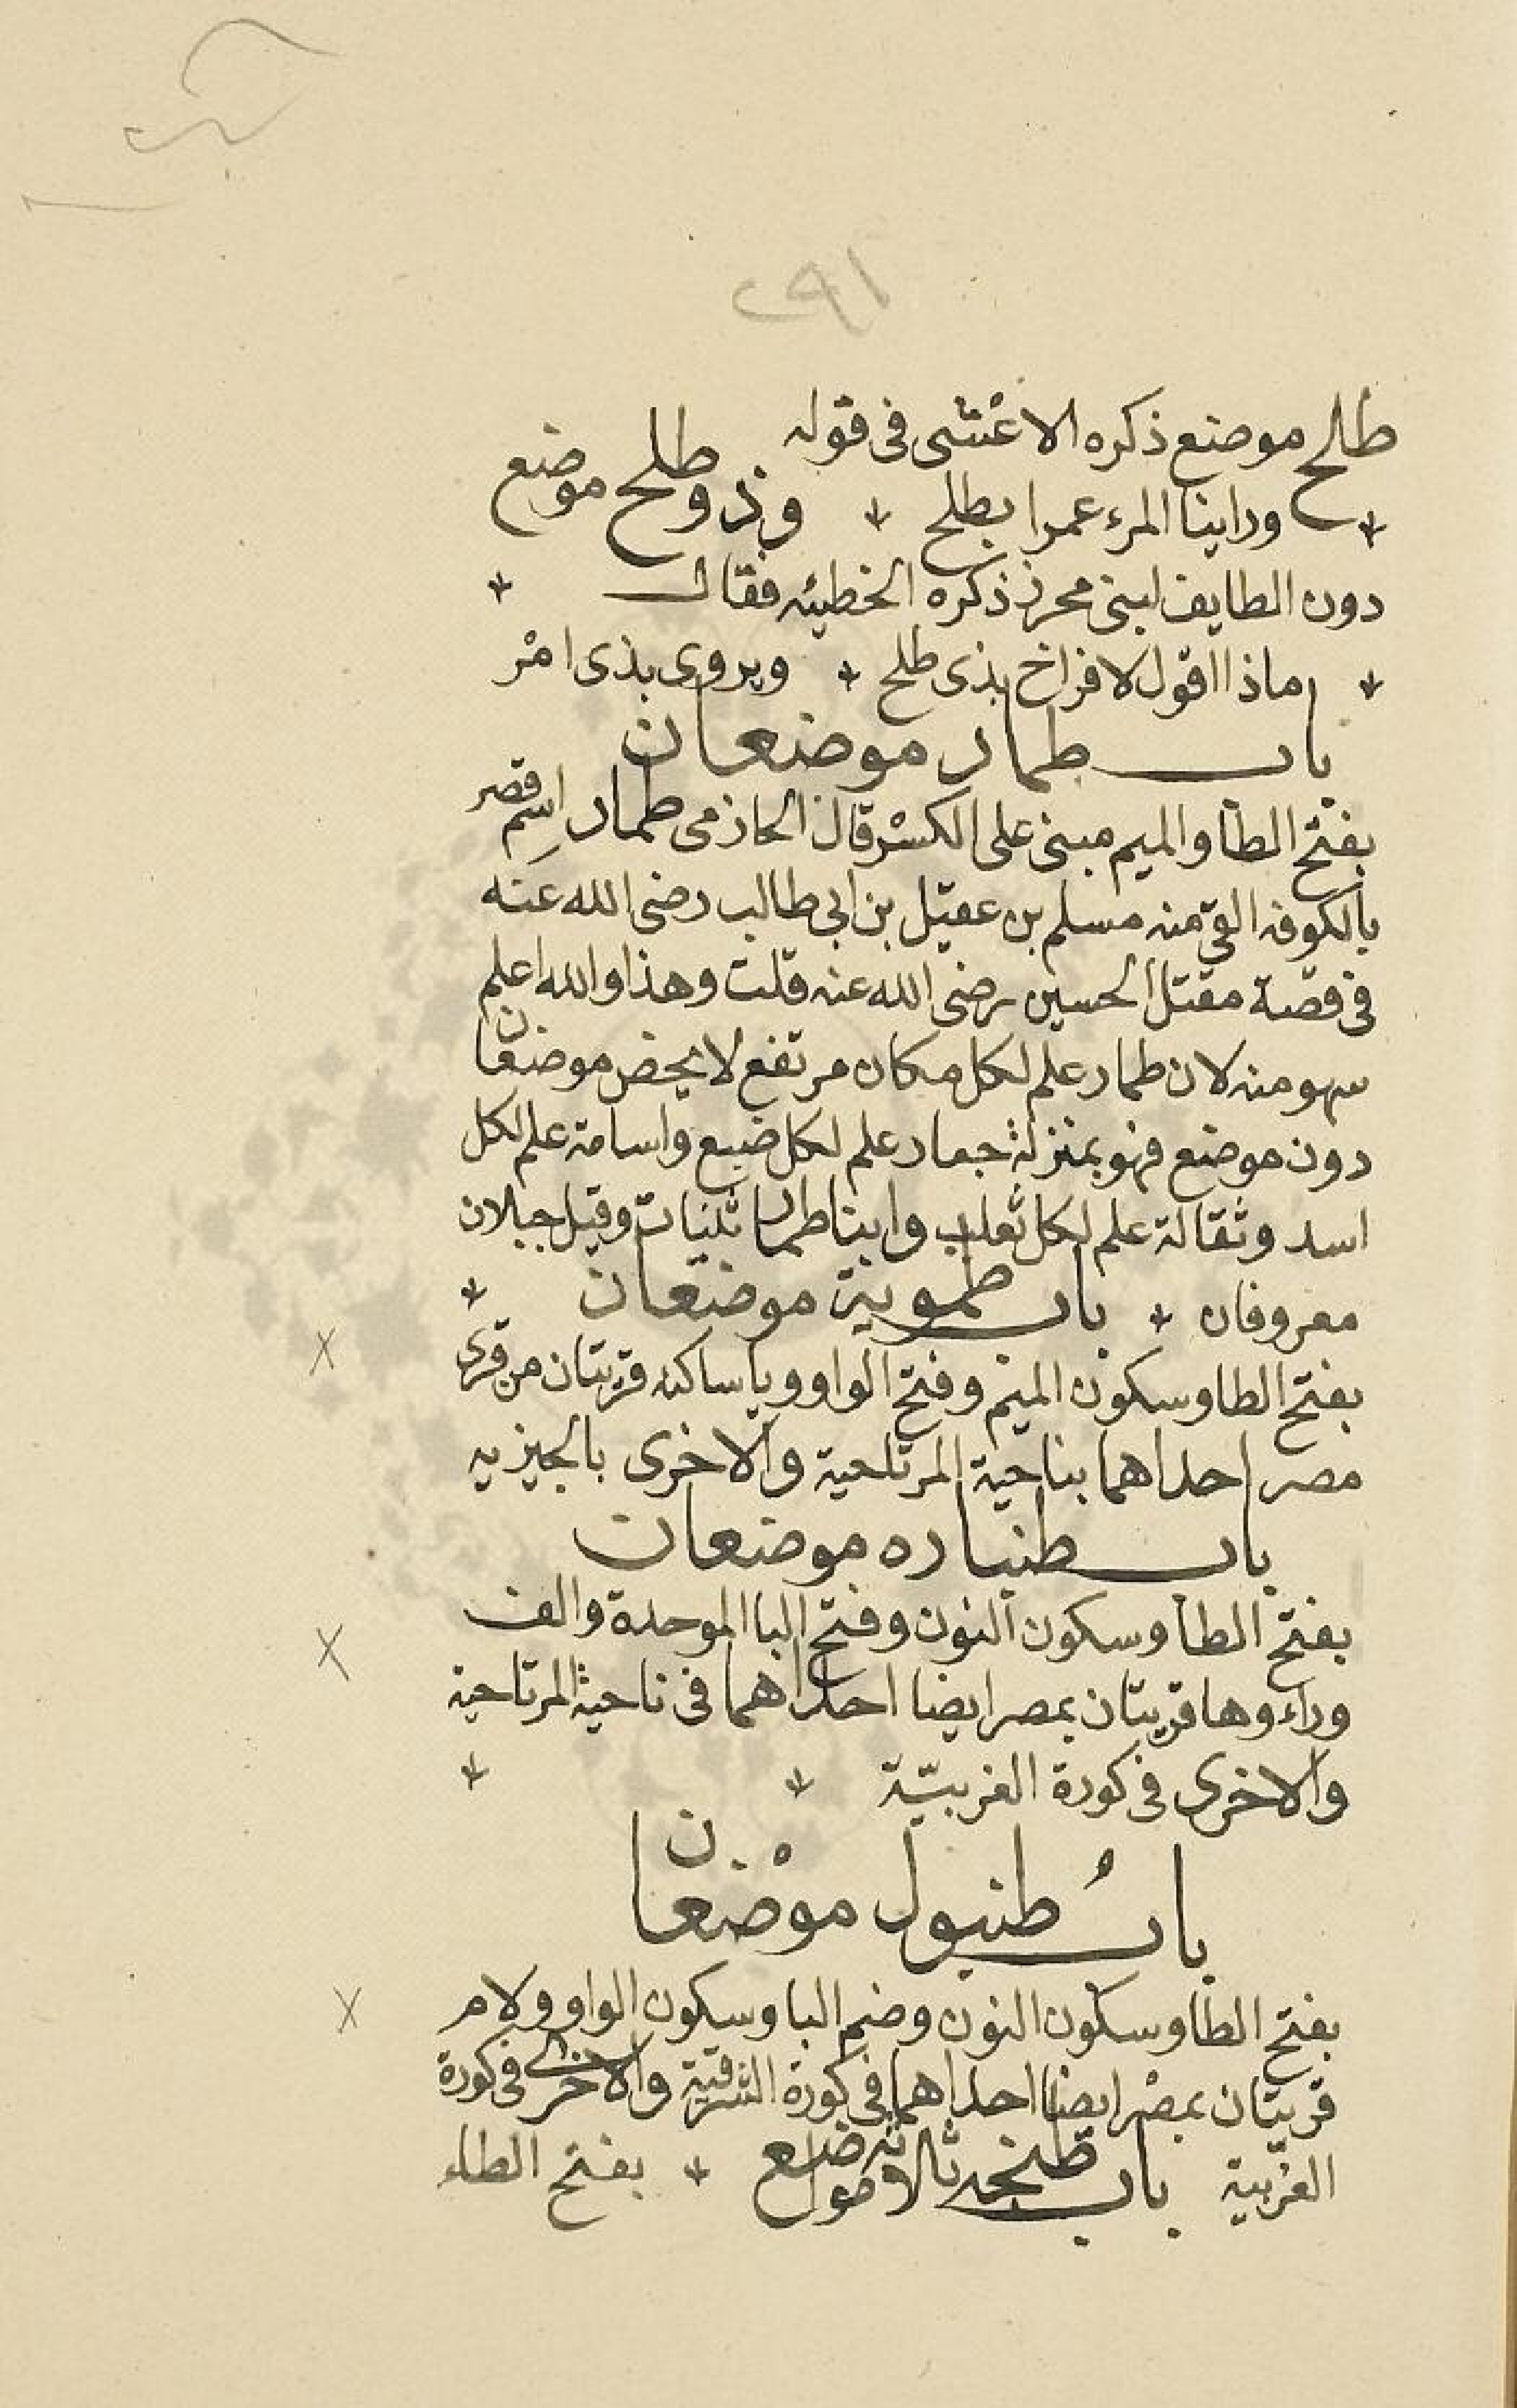 ٢٩١
طلح موضع ذكره الاعشى فى قوله
ورأينا المرء عمرا بطلح وذو طلح موضع
دون الطايف لبنى محرز ذكره الخطيئه فقال
ماذا اقول لافراخ بذى طلح ويروى بذى امر
باب طمار موضعان
بفتح الطا والميم مبنى على الكسر قال الحازمى طمار اسم قصر
بالكوفه القى منه مسلم بن عقيل بن ابى طالب رضى الله عنه
فى قصة مقتل الحسين رضى الله عنه قلت وهذا والله اعلم
سهو منه لان طمار علم لكل مكان مرتفع لا يخص موضعا
دون موضع فهو بمنزلة جعار علم لكل ضبع واسامة علم لكل
اسد وثقالة علم لكل ثعلب وابنا طمار ثنيات وقيل جبلان
معروفان باب طموية موضعان
بفتح الطا وسكون الميم وفتح الواو ويا ساكنه قريتان من قرى
مصر احداهما بناحية المرتاحية والاخرى بالجيزيه
باب طنباره موضعان
بفتح الطا وسكون النون وفتح البا الموحدة والف
وراء وها قريتان بمصر ايضا احداهما فى ناحية المرتاحية
والاخرى فى كورة الغربيّة
باب طنبول موضعان
بفتح الطا وسكون النون وضم البا وسكون الواو ولام
قريتان بمصر ايضا احداهما فى كورة الشرقية والاخرى فى كورة
الغربية باب طنجه ثلاثة مواضع بفتح الطاء